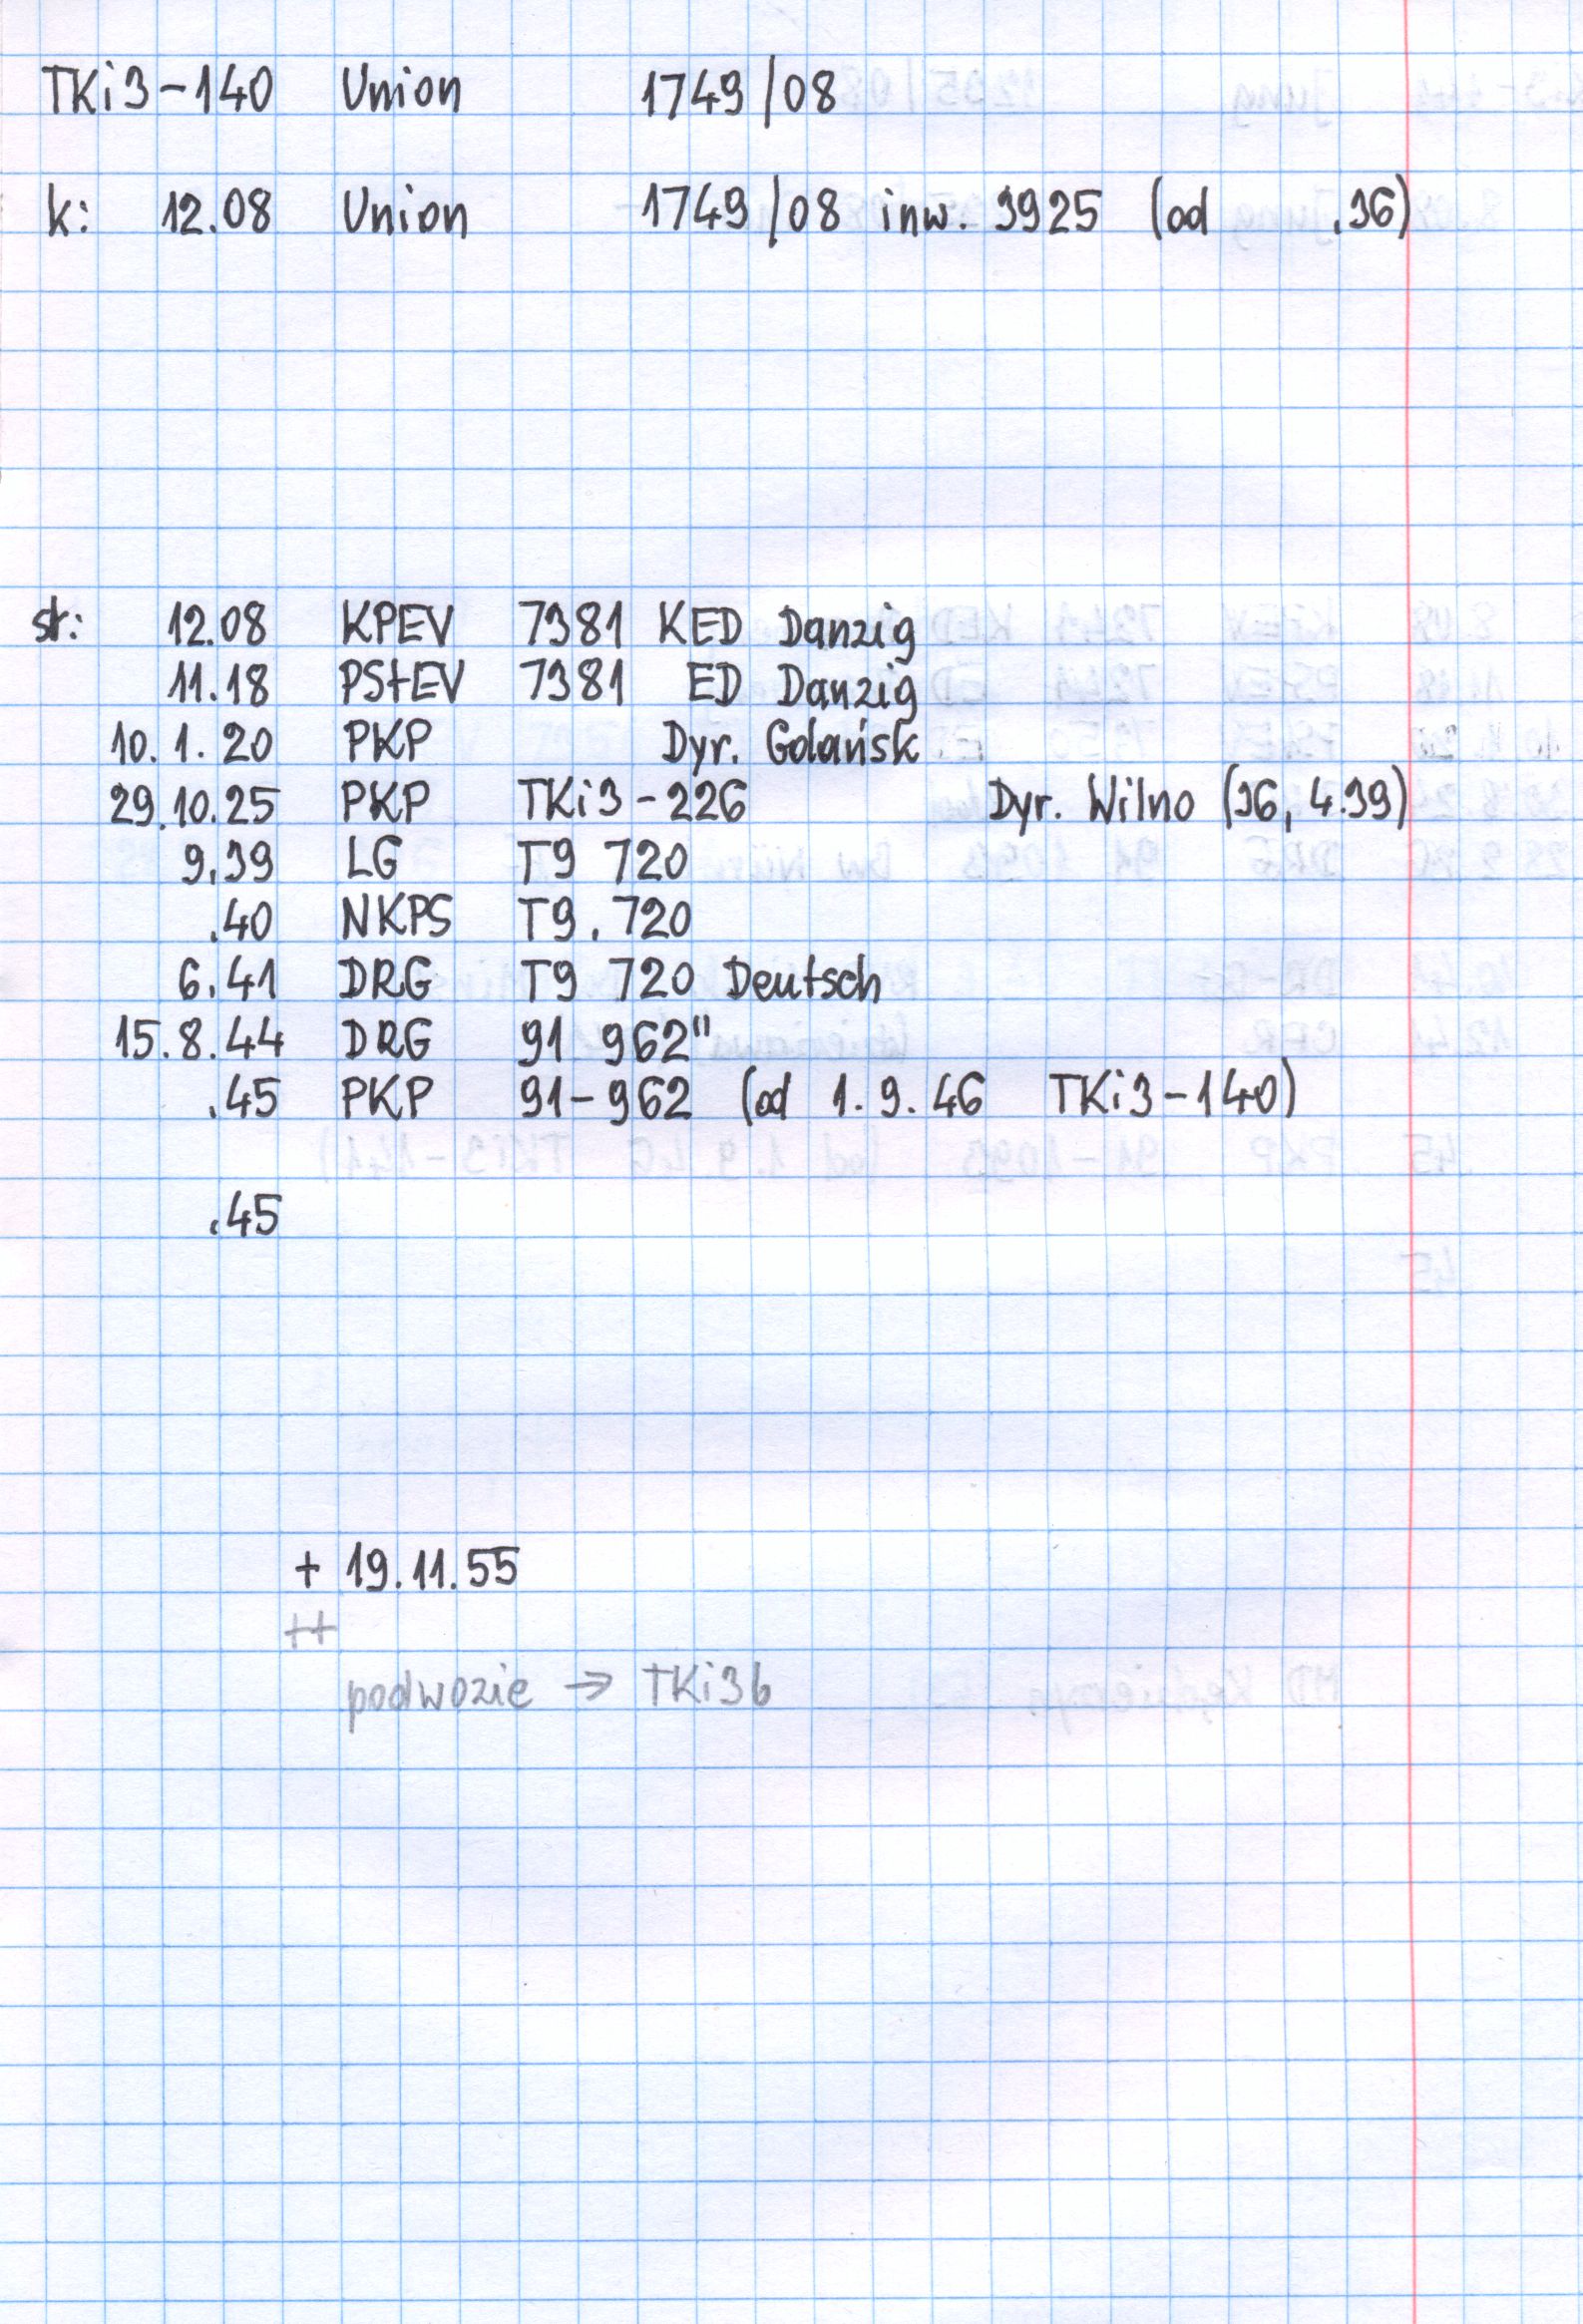 TKi3-140 Union 1749/08
k: 12.08 Union 1749/08 inw. 3925 (od .36)
st: 12.08 KPEV 7381 KED Danzig
11.18 PStEV 7381 ED Danzig
10.1.20 PKP Dyr. Gdańsk
29.10.25 PKP TKi3-226 Dyr. Wilno (36, 4.39)
9.39 LG T9 720
.40 NKPS T9.720
6.41 DRG T9 720 Deutsch
15.8.44 DRG 91 962"
.45 PKP 91-962 (od 1.9.46 TKi3-140)
.45
+ 19.11.55
++
podwozie → TKi3b